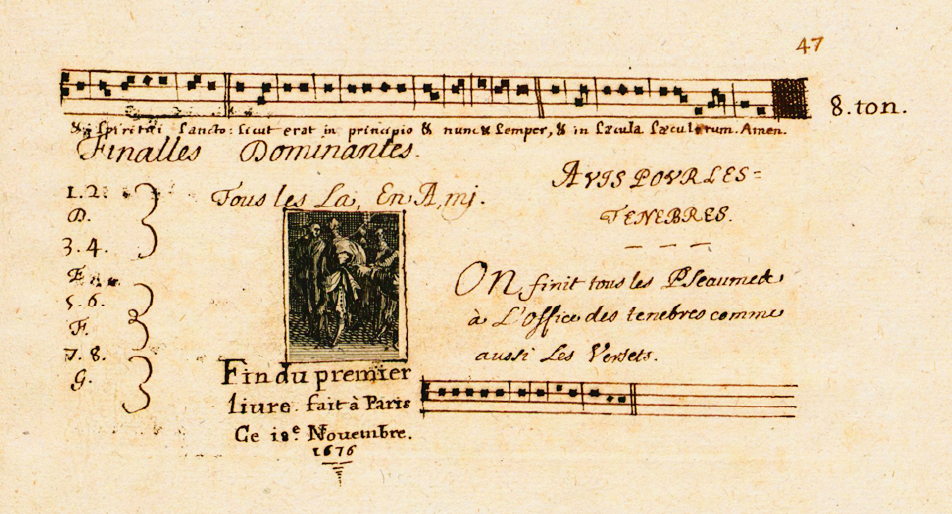 47
8. ton.
& Spiritui Sancto: sicut erat in principio & nunc & semper, & in sæcula sæculorum. Amen.
Finalles Dominantes.
Tous les La, En A, mj.
1. 2.
D.
3. 4.
E
5. 6.
F.
7. 8.
G.
AVIS POVR LES=
TENEBRES.
On finit tous les Pseaumes
à L'office des tenebres comme
aussi Les Versets.
Fin du premier
liure fait à Paris
Ce 18e. Nouembre.
1676